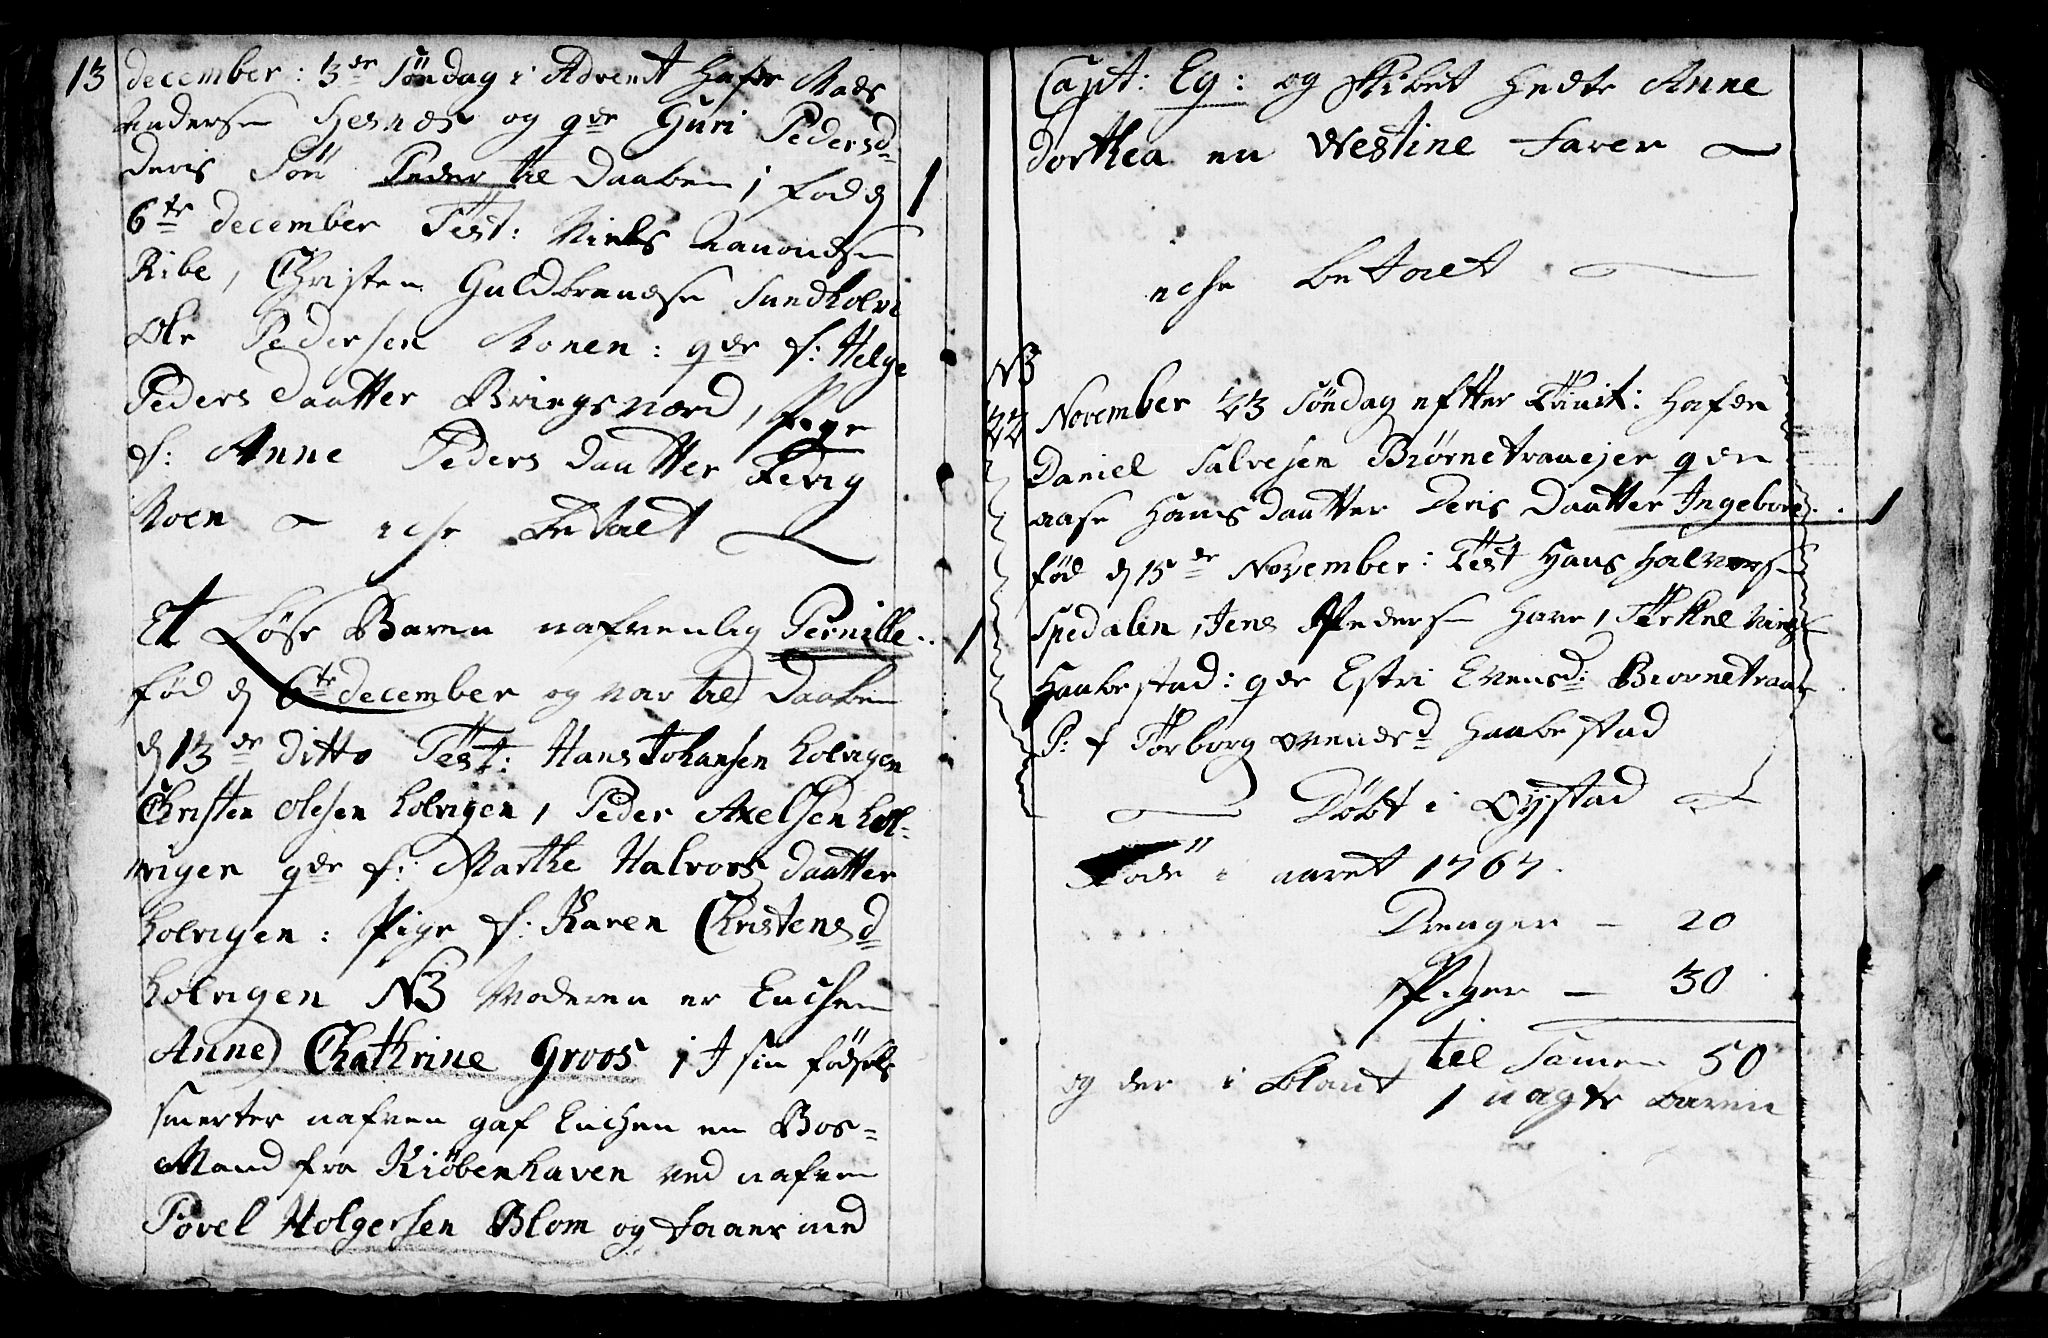 13 december: 3de Söndag i Advent hafr Mads
Anderse Hesnæs og qde Guri Pedersd
deris Sön Peder til Daaben, fod d 1
6te december Test: Niels Aanonse
Ribe, Christen Guldbrandse Sundholvi
Ole Pedersen Monen: qde f: Helge
Peders daatter Bringsværd, Pige
f: Anne Peders daatter Fevig
Moen icke Betalt
Et Løse Baren nafvenlig Pernille .. 1
fød d 6te december og var til Daaben
d 13de ditto Test: Hans Johansen holvigen
Christen Olesen holvigen, Peder Axelsen hol-
vigen qde f: Marthe Halvors daatter
holvigen: Pige f: Karen Christensd
holvigen NB Moderen er Enchen
Anne Chathrine Groos, I sin födsels
smerter nafven gaf Enchen en Bos=
Mand fra Kiöbenhaven ved nafven
Povel Holgersen Blom og faaer med
Capt: Eg: og Skibet hedte Anne
dorthea en Westine farer
icke betalt
NB
22 November 23 Söndag efter Trinit: hafde
Daniel Salvesen Biørnetraaejer qde
aase Hans daatter Deris Daatter Ingebore .. 1
fød d 15de November: Test Hans Halvorse
Spedalen, Jens Pederse Have, Terkel
Haabestad: qde Estri Evensd: Biørnetraae
P: f Törborg Evensd Haabestad
Döbt i Oÿstad
Föde i aaret 1767.
Drenger - 20
Piger - 30
til Samen 50
og der i blant 1 uægte baren